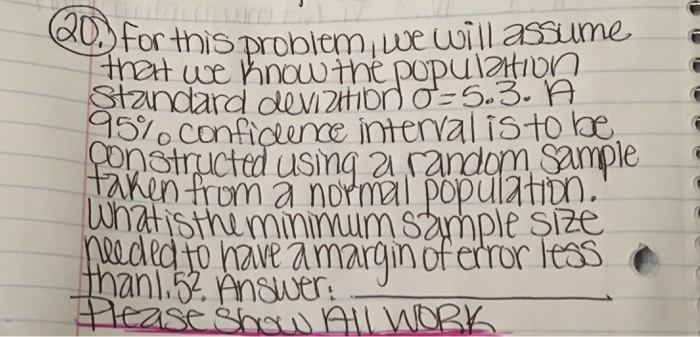 20. For this problem, we will assume
that we know the population
standard deviation σ=5.3. A
95% confidence interval is to be
constructed using a random sample
taken from a normal population.
What is the minimum sample size
needed to have a margin of error less
than 1.5? Answer:
Please show All WORK